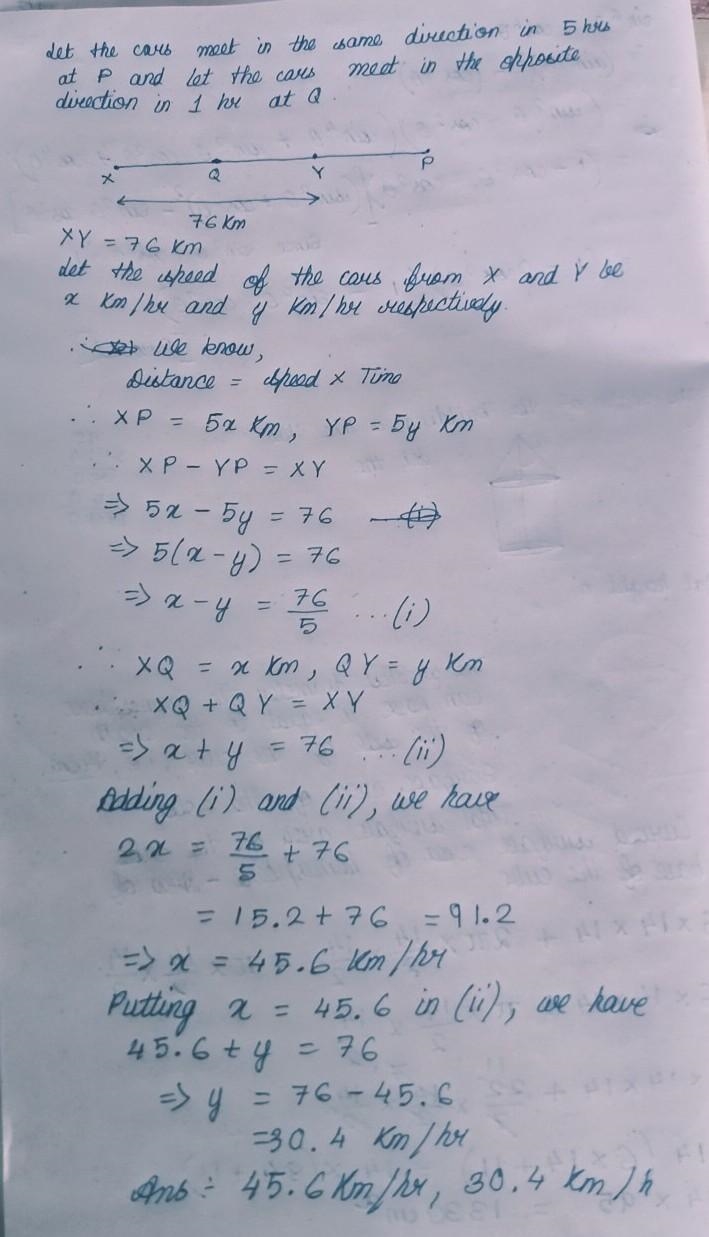 Let the cars meet in the same direction in 5 hrs
at P and let the cars meet in the opposite
direction in 1 hr at Q
X Q Y P
76 Km
XY = 76 Km
Let the speed of the cars from X and Y be
x Km/hr and y Km/hr respectively.
We know,
Distance = Speed × Time
∴ XP = 5x Km, YP = 5y Km
∴ XP - YP = XY
⇒ 5x - 5y = 76
⇒ 5(x - y) = 76
⇒ x - y = 76/5 ...(i)
∴ XQ = x Km, QY = y Km
∴ XQ + QY = XY
⇒ x + y = 76 ...(ii)
Adding (i) and (ii), we have
2x = 76/5 + 76
= 15.2 + 76 = 91.2
⇒ x = 45.6 Km/hr
Putting x = 45.6 in (ii), we have
45.6 + y = 76
⇒ y = 76 - 45.6
=30.4 Km/hr
Ans:- 45.6 Km/hr, 30.4 Km/h